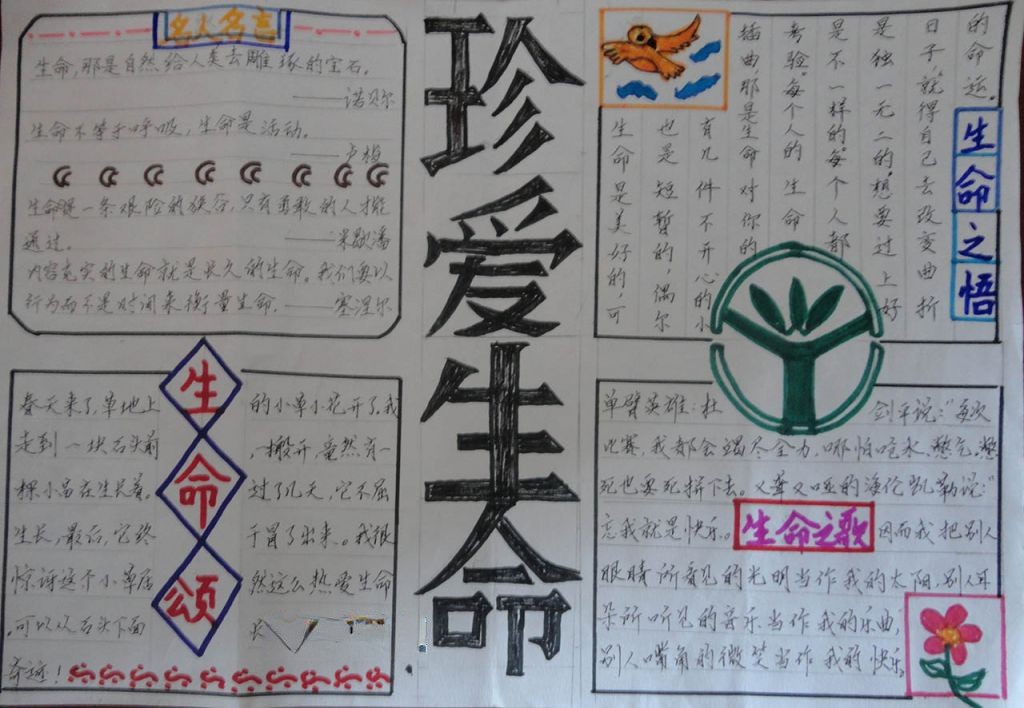 名人名言
生命,那是自然给人类去雕琢的宝石。
——诺贝尔
生命不等于呼吸,生命是活动。
——卢梭
生命是一条艰险的狭谷,只有勇敢的人才能
通过。——米歇潘
内容充实的生命就是长久的生命。我们要以
行为而不是时间来衡量生命。——塞涅尔
珍爱生命
生命之悟
生命是美好的,可
也是短暂的,偶尔
有几件不开心的小
插曲,那是生命对你的
考验。每个人的生命
是不一样的。每个人都
是独一无二的。想要过上好
日子,就得自己去改变曲折
的命运。
生命颂
春天来了,草地上的小草小花开了,我
走到一块石头前,搬开,竟然有一
棵小苗在生长着。过了几天,它不屈
生长,最后,它终于冒了出来。我很
惊讶这个小草居然这么热爱生命
,可以从石头下面长
奇迹!
单臂英雄:杜剑平说:“每次
比赛,我都会竭尽全力,哪怕呛水、憋气,憋
死也要死拼下去。又聋又哑的海伦凯勒说:“
忘我就是快乐。因而我把别人
生命之歌
眼睛所看见的光明当作我的太阳,别人耳
朵所听见的音乐当作我的乐曲,
别人嘴角的微笑当作我的快乐